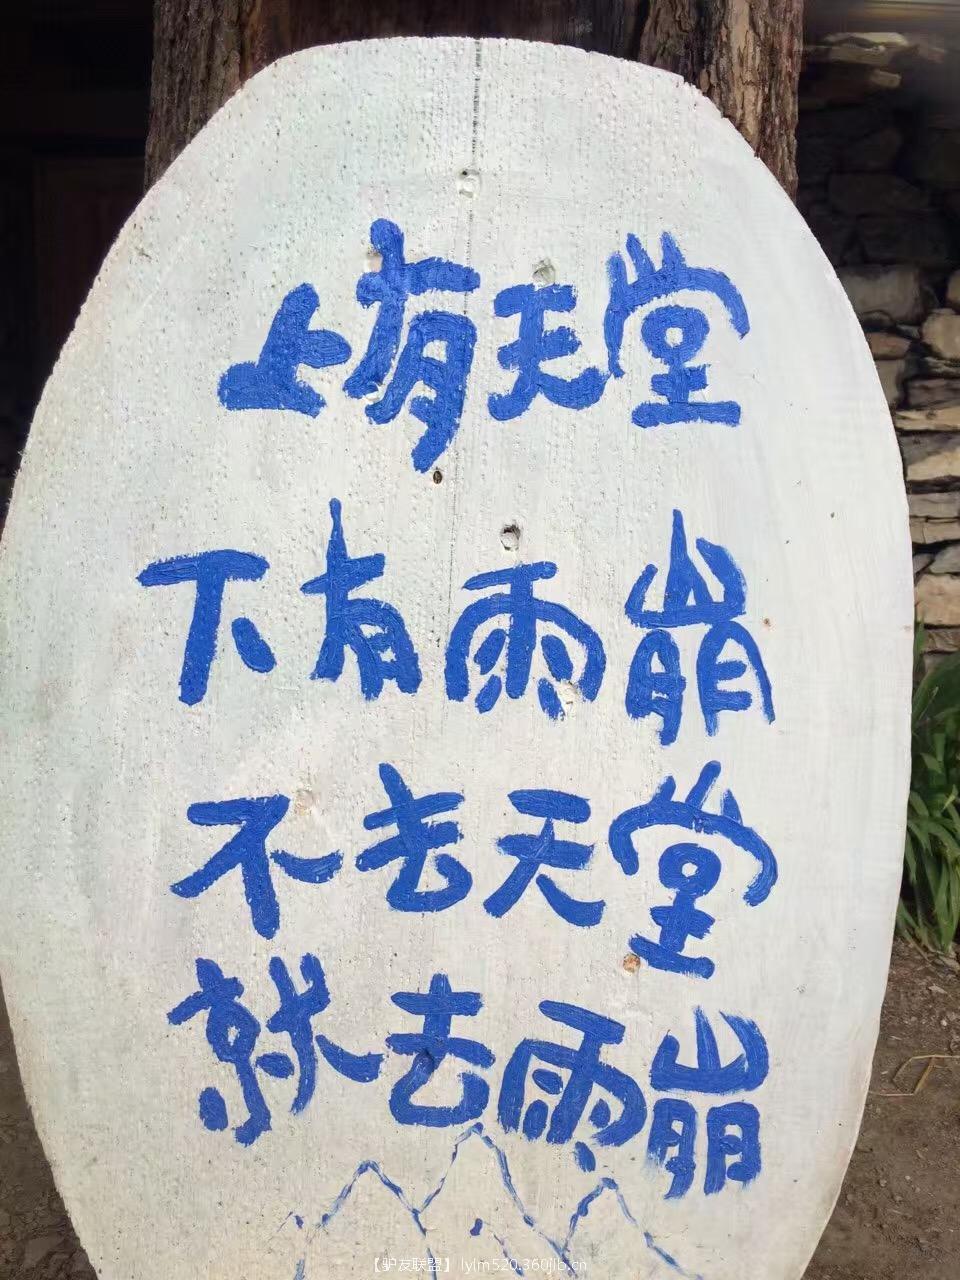 上有天堂
下有雨崩
不去天堂
就去雨崩
【驴友联盟】lylm520.360jlb.cn